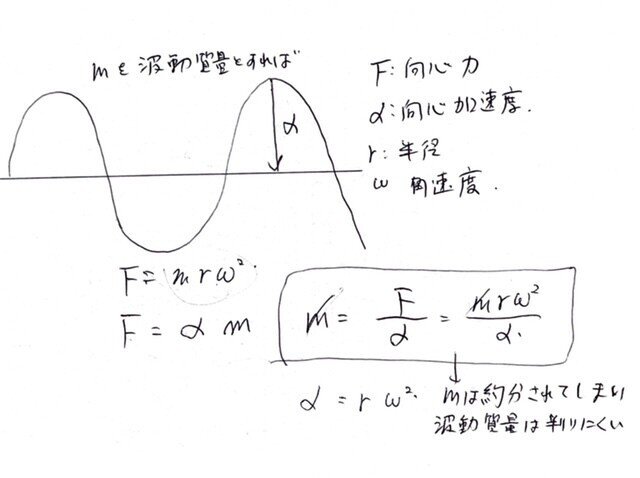 mを波動質量とすれば
α
F:向心力
α:向心加速度.
r:半径
ω 角速度.
F = mrω²
F = α m
m = F/α = mrω²/α.
α = rω².
mは約分されてしまい
波動質量は判りにくい